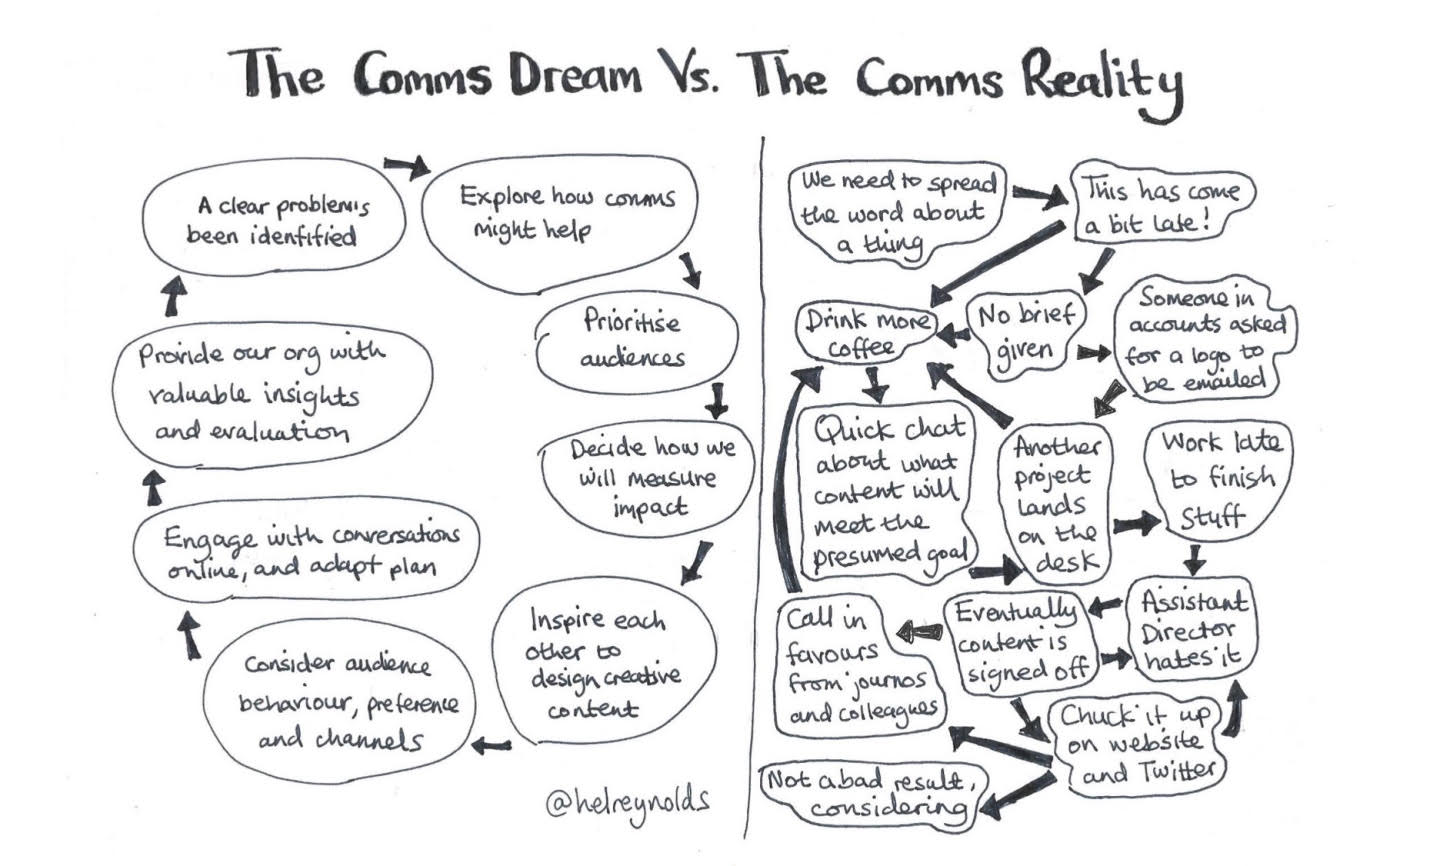 The Comms Dream Vs. The Comms Reality
A clear problem's
been identified
Explore how comms
might help
Prioritise
audiences
Decide how we
will measure
impact
Inspire each
other to
design creative
content
Consider audience
behaviour, preference
and channels
Engage with conversations
online, and adapt plan
Provide our org with
valuable insights
and evaluation
@helreynolds
We need to spread
the word about
a thing
This has come
a bit late!
No brief
given
Drink more
coffee
Someone in
accounts asked
for a logo to
be emailed
Quick chat
about what
content will
meet the
presumed goal
Another
project
lands
on the
desk
Work late
to finish
stuff
Assistant
Director
hates it
Eventually
content is
signed off
Call in
favours
from journos
and colleagues
Chuck it up
on website
and Twitter
Not a bad result,
considering